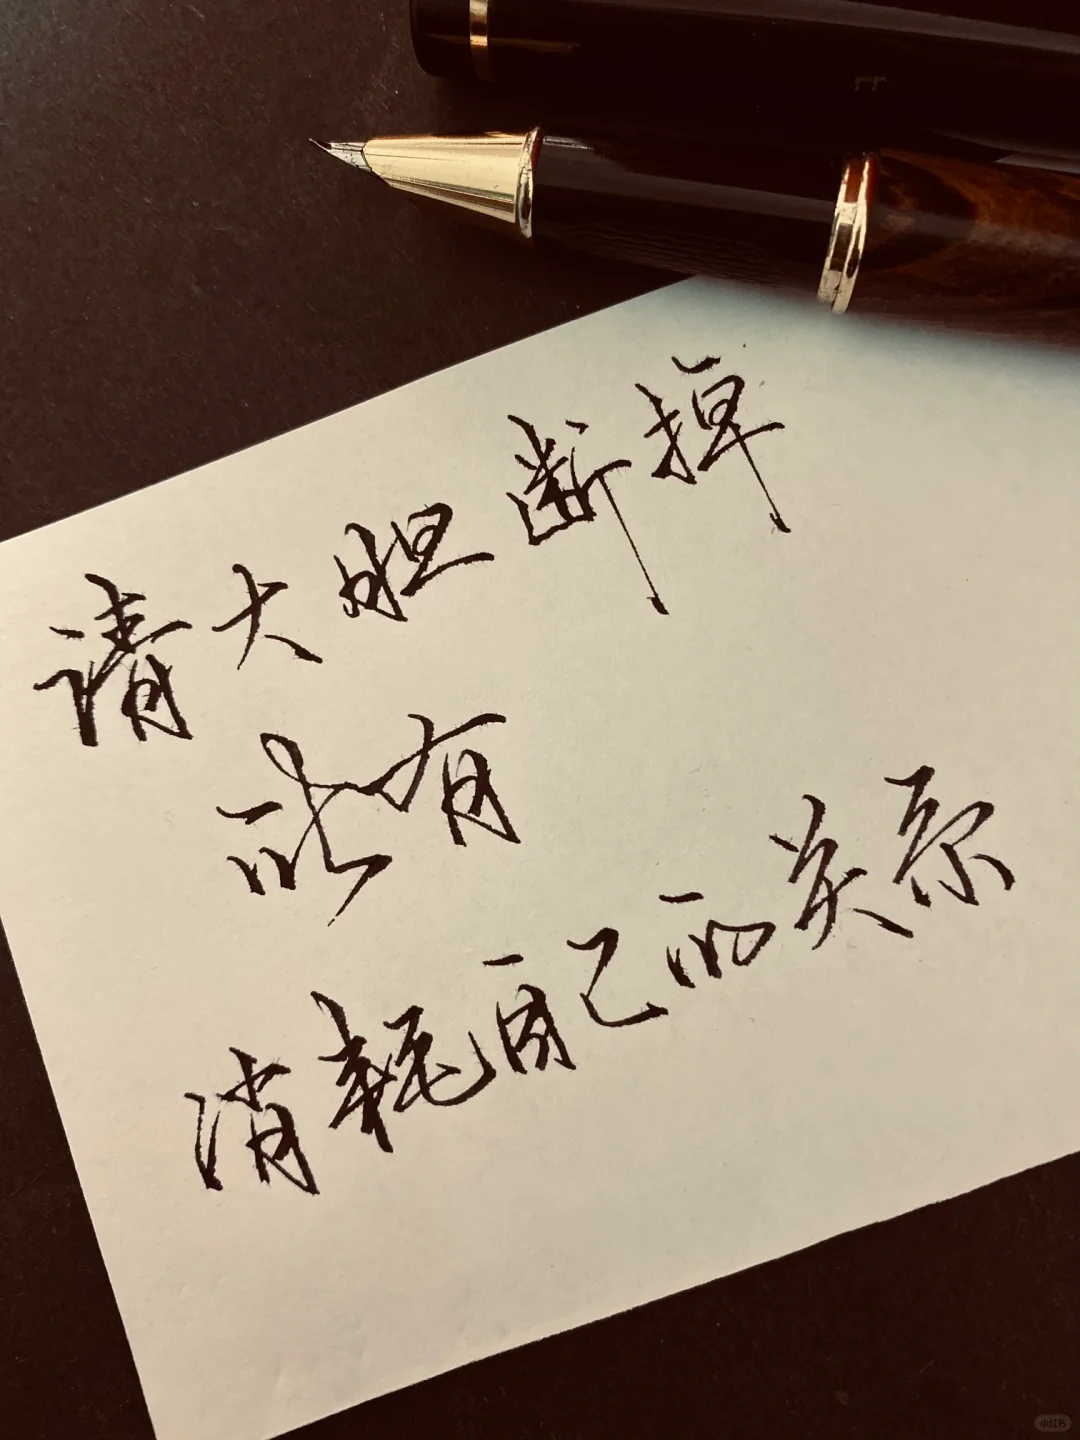 请大胆断掉
所有
消耗自己的关系
小红书